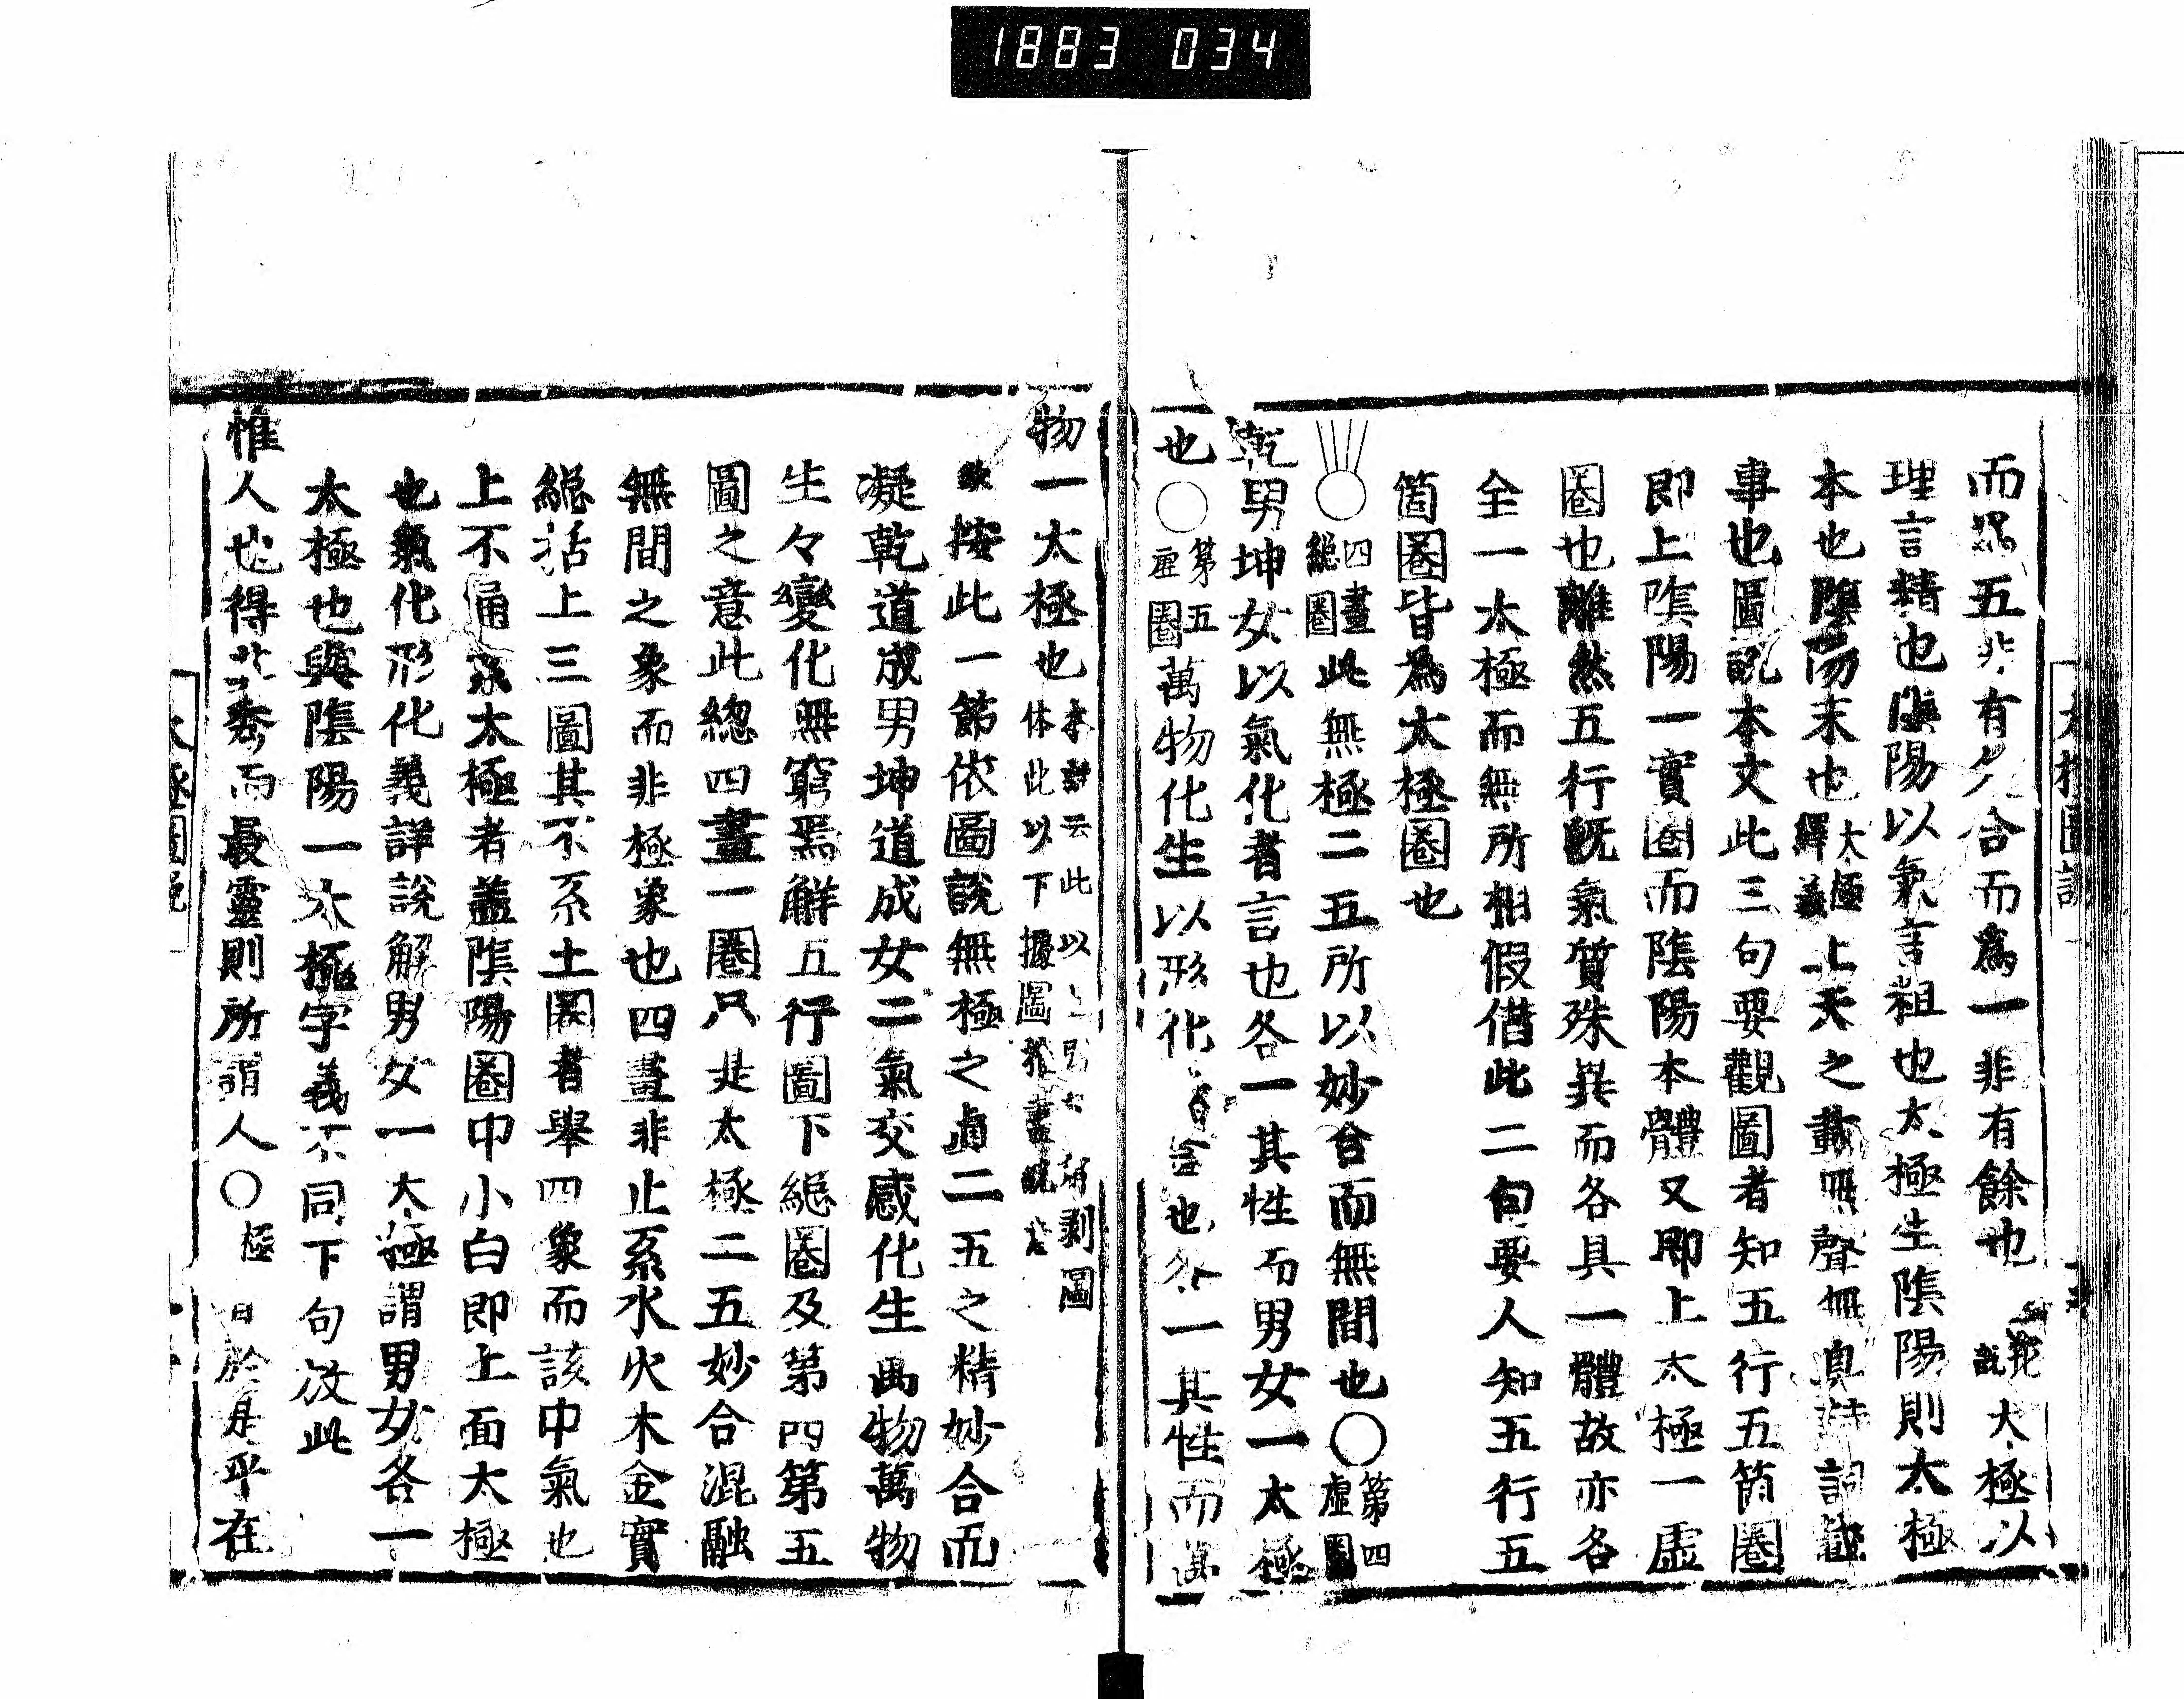 1883 034
而四五非有欠合而爲一非有餘也 太極以
理言精也陰陽以氣言粗也太極生陰陽則太極
本也陰陽末也太極釋義上天之載無聲無臭詩
事也圖說本文此三句要觀圖者知五行五箇圈
即上陰陽一實圈而陰陽本體又即上太極一虛
圈也雖然五行旣氣質殊異而各具一體故亦各
全一太極而無所相假借此二句要人知五行五
箇圈皆爲太極圈也
○四畫緫圈此無極二五所以妙合而無間也○第四虛圈
乾男坤女以氣化者言也各一其性而男女一太極
也○第五虛圈萬物化生以形化者言也各一其性而萬
物一太極也本註云此以上 剥圖体此以下據圖推盡說意
按此一節依圖說無極之眞二五之精妙合而
凝乾道成男坤道成女二氣交感化生萬物萬物
生々變化無窮焉解五行圖下緫圈及第四第五
圖之意此緫四畫一圈只是太極二五妙合混融
無間之象而非極象也四畫非止系水火木金實
緫括上三圖其不系土圈者舉四象而該中氣也
上不通系太極者蓋陰陽圈中小白即上面太極
也氣化形化義詳說解男女一太極謂男女各一
太極也與陰陽一太極字義不同下句放此
惟人也得其秀而最靈則所謂人○極 於是乎在
太極圖說